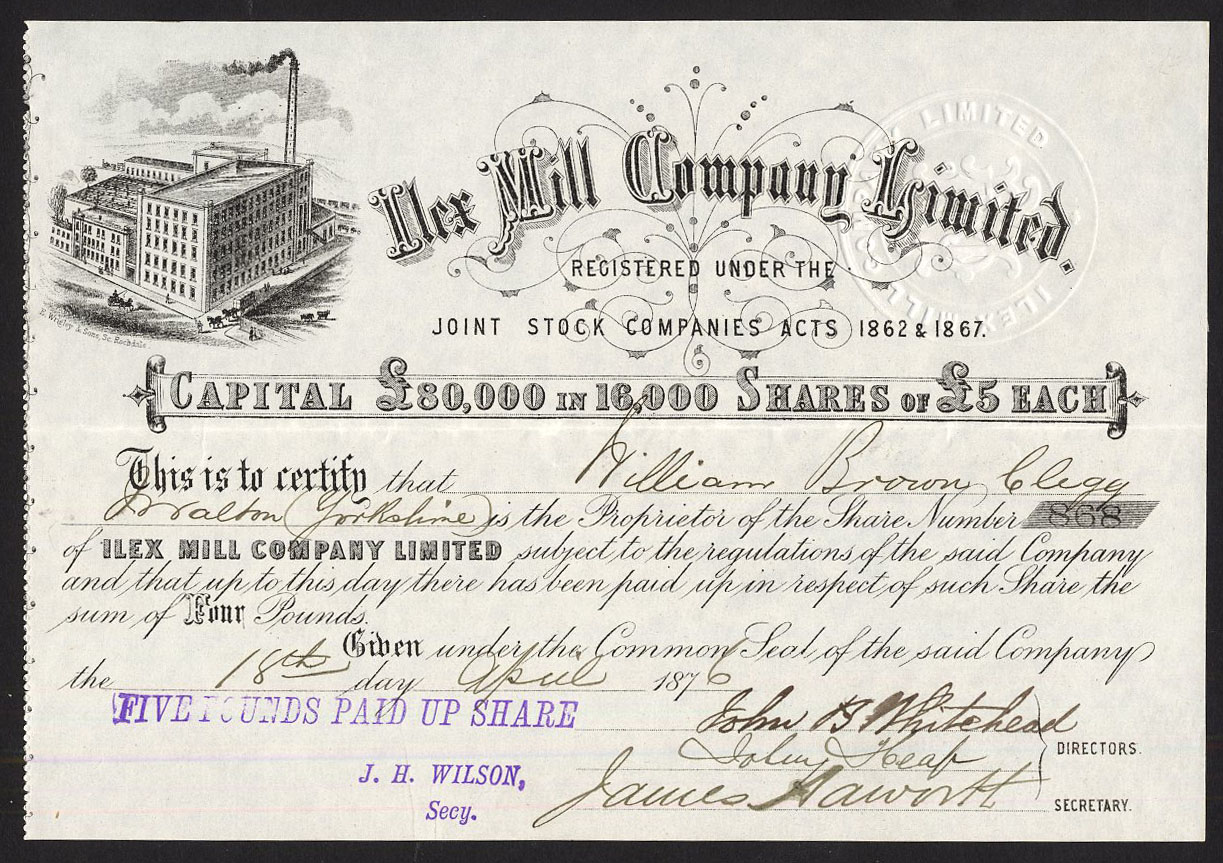 Ilex Mill Company Limited.
LIMITED
ILEX MILL
REGISTERED UNDER THE
JOINT STOCK COMPANIES ACTS 1862 & 1867.
E. Wrigley & Sons, Sc. Rochdale
CAPITAL £80,000 IN 16,000 SHARES OF £5 EACH
This is to certify that William Brown Clegg
Walton (Yorkshire) is the Proprietor of the Share Number 868
of ILEX MILL COMPANY LIMITED subject to the regulations of the said Company
and that up to this day there has been paid up in respect of such Share the
sum of Four Pounds.
Given under the Common Seal of the said Company
the 18th day April 1876
FIVE POUNDS PAID UP SHARE
John B Whitehead
Heap
DIRECTORS.
J. H. WILSON,
Secy.
James Haworth
SECRETARY.